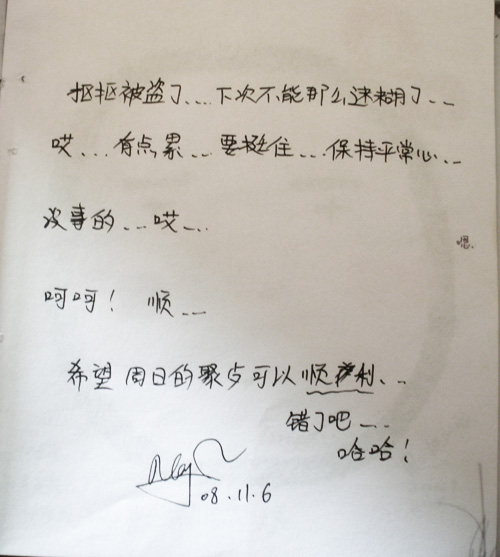 抠抠被盗了...下次不能那么迷糊了...
哎...有点累...要挺住...保持平常心...
没事的...哎...
嗯.
呵呵！ 顺...
希望周日的聚与可以顺利...
错了吧...
哈哈！
08.11.6